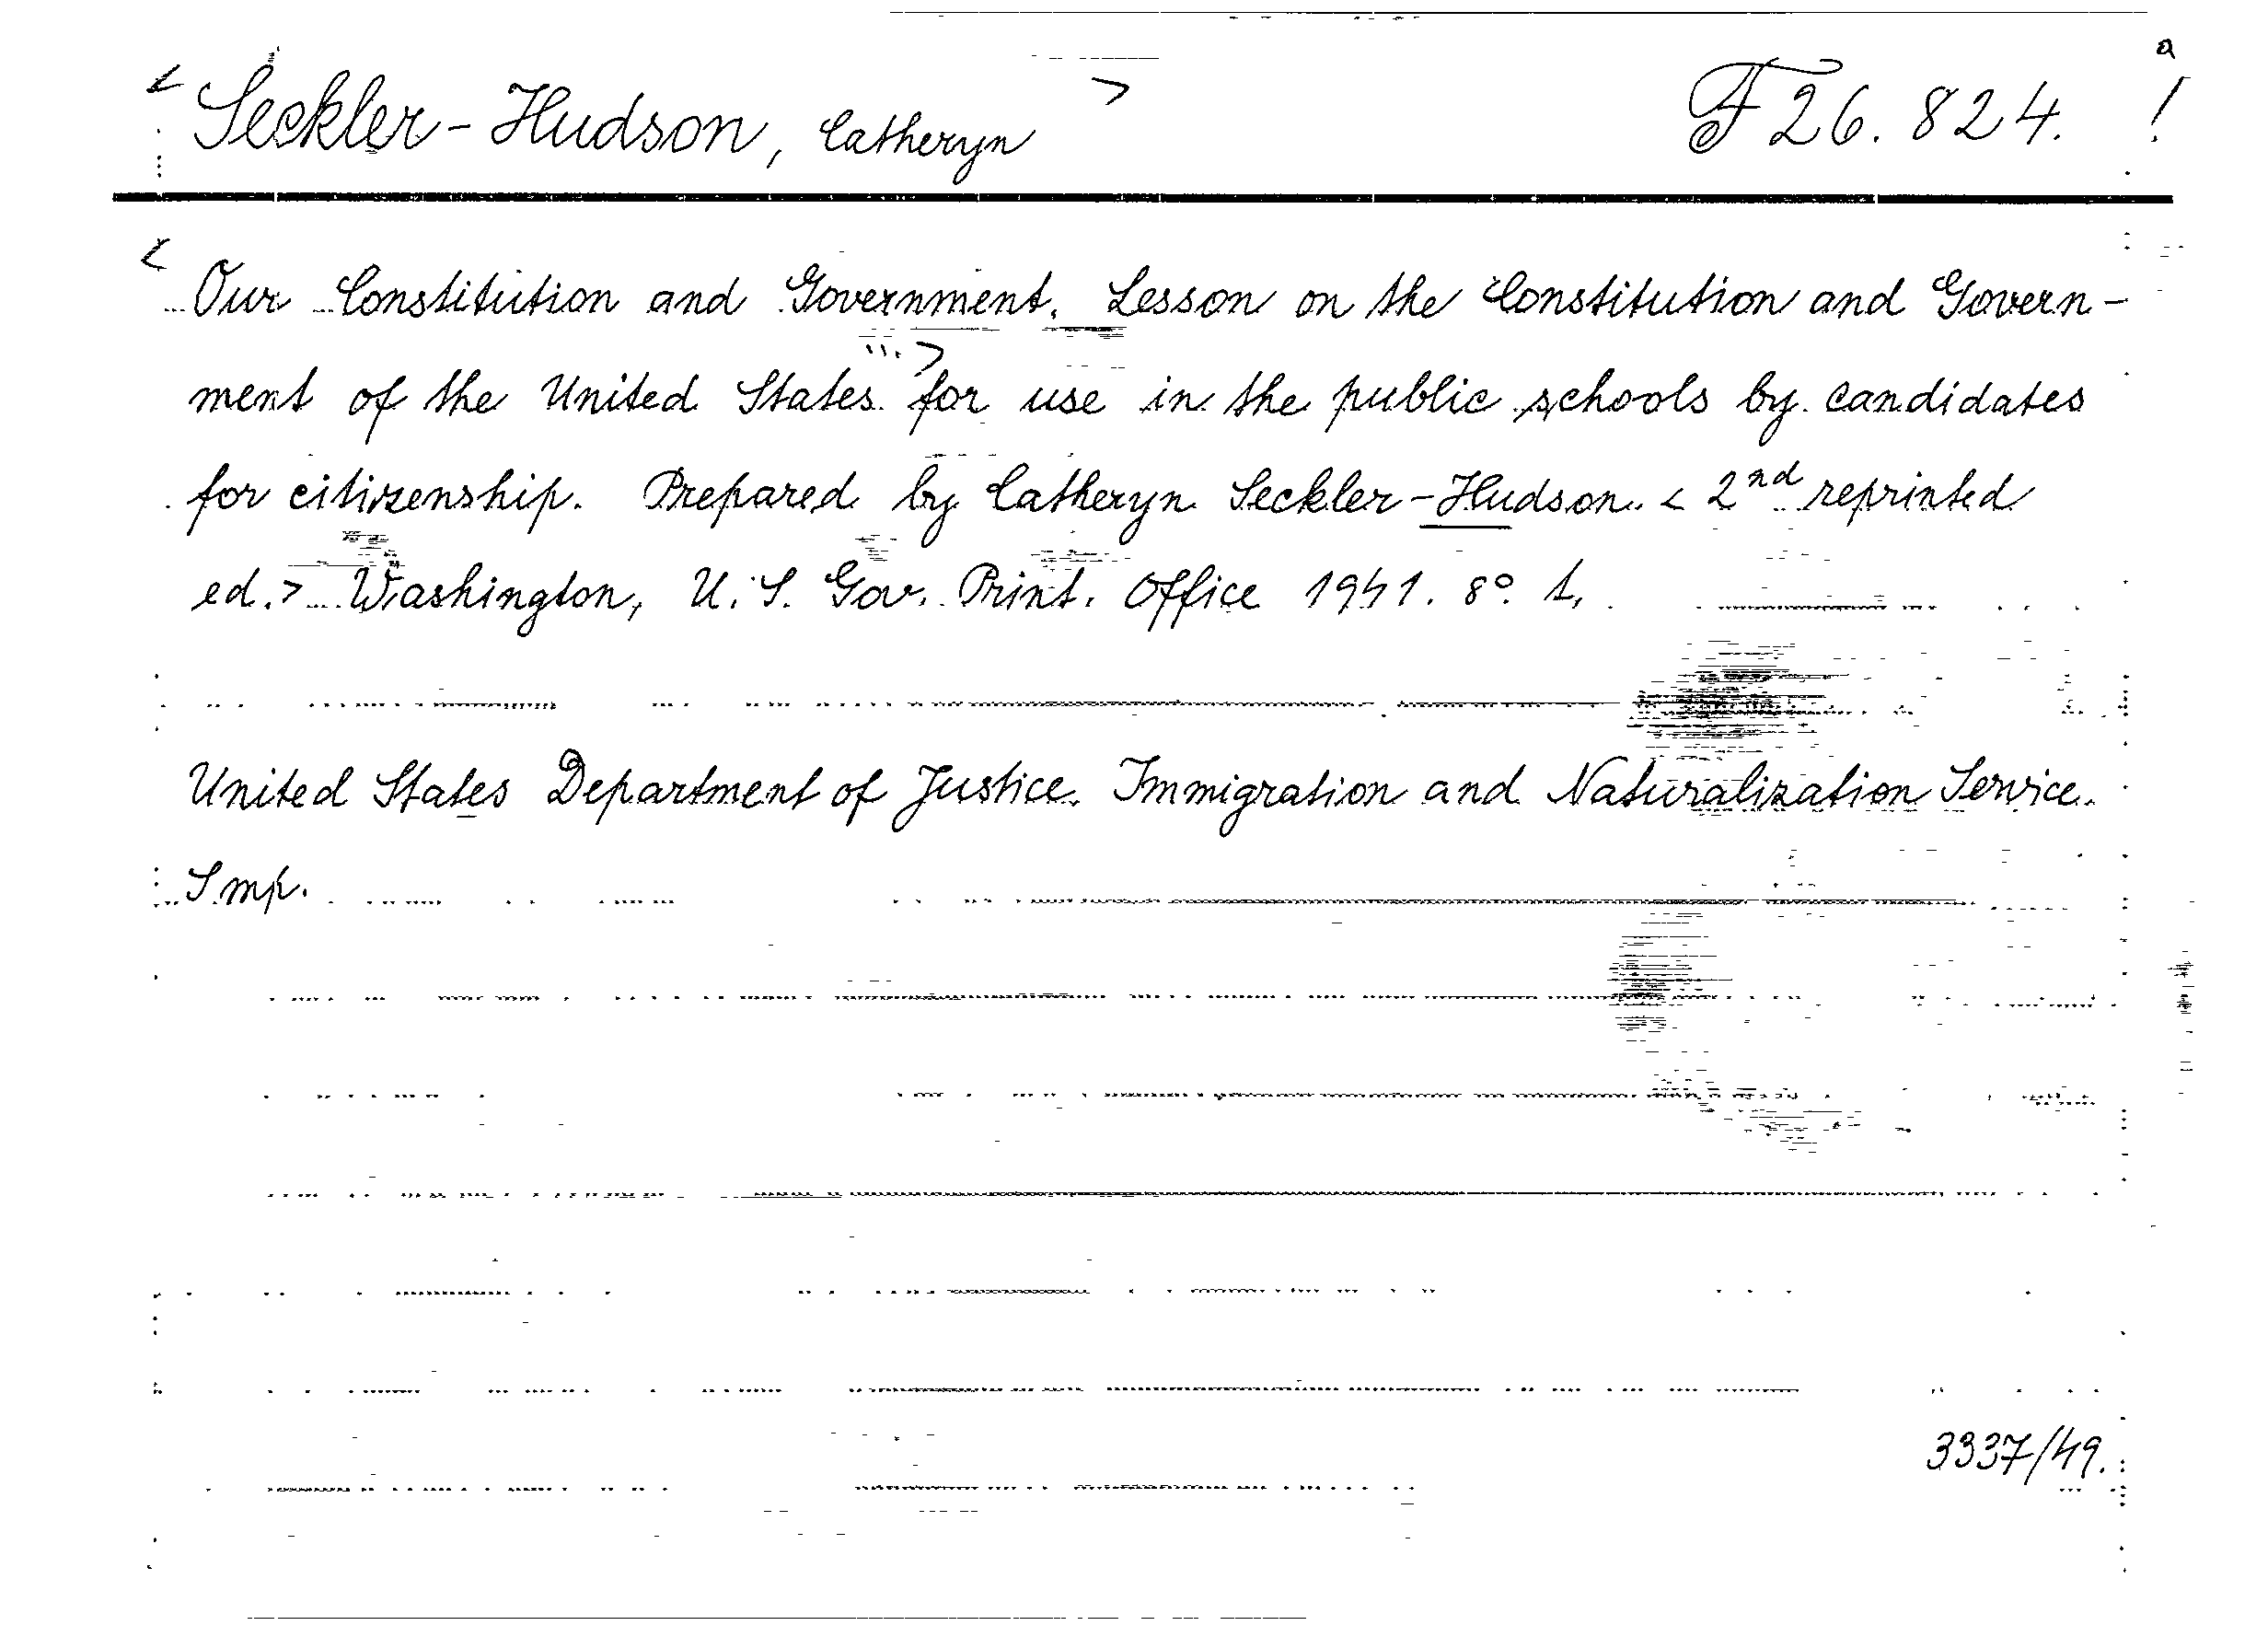 a
< Seckler-Hudson, Catheryn > F 26.824. !
< Our Constitution and Government. Lesson on the Constitution and Govern-
ment of the United States ... > for use in the public schools by candidates
for citizenship. Prepared by Catheryn Seckler-Hudson. < 2nd reprinted
ed. > Washington, U.S. Gov. Print. Office 1941. 8°.
United States Department of Justice. Immigration and Naturalization Service.
3337/49.